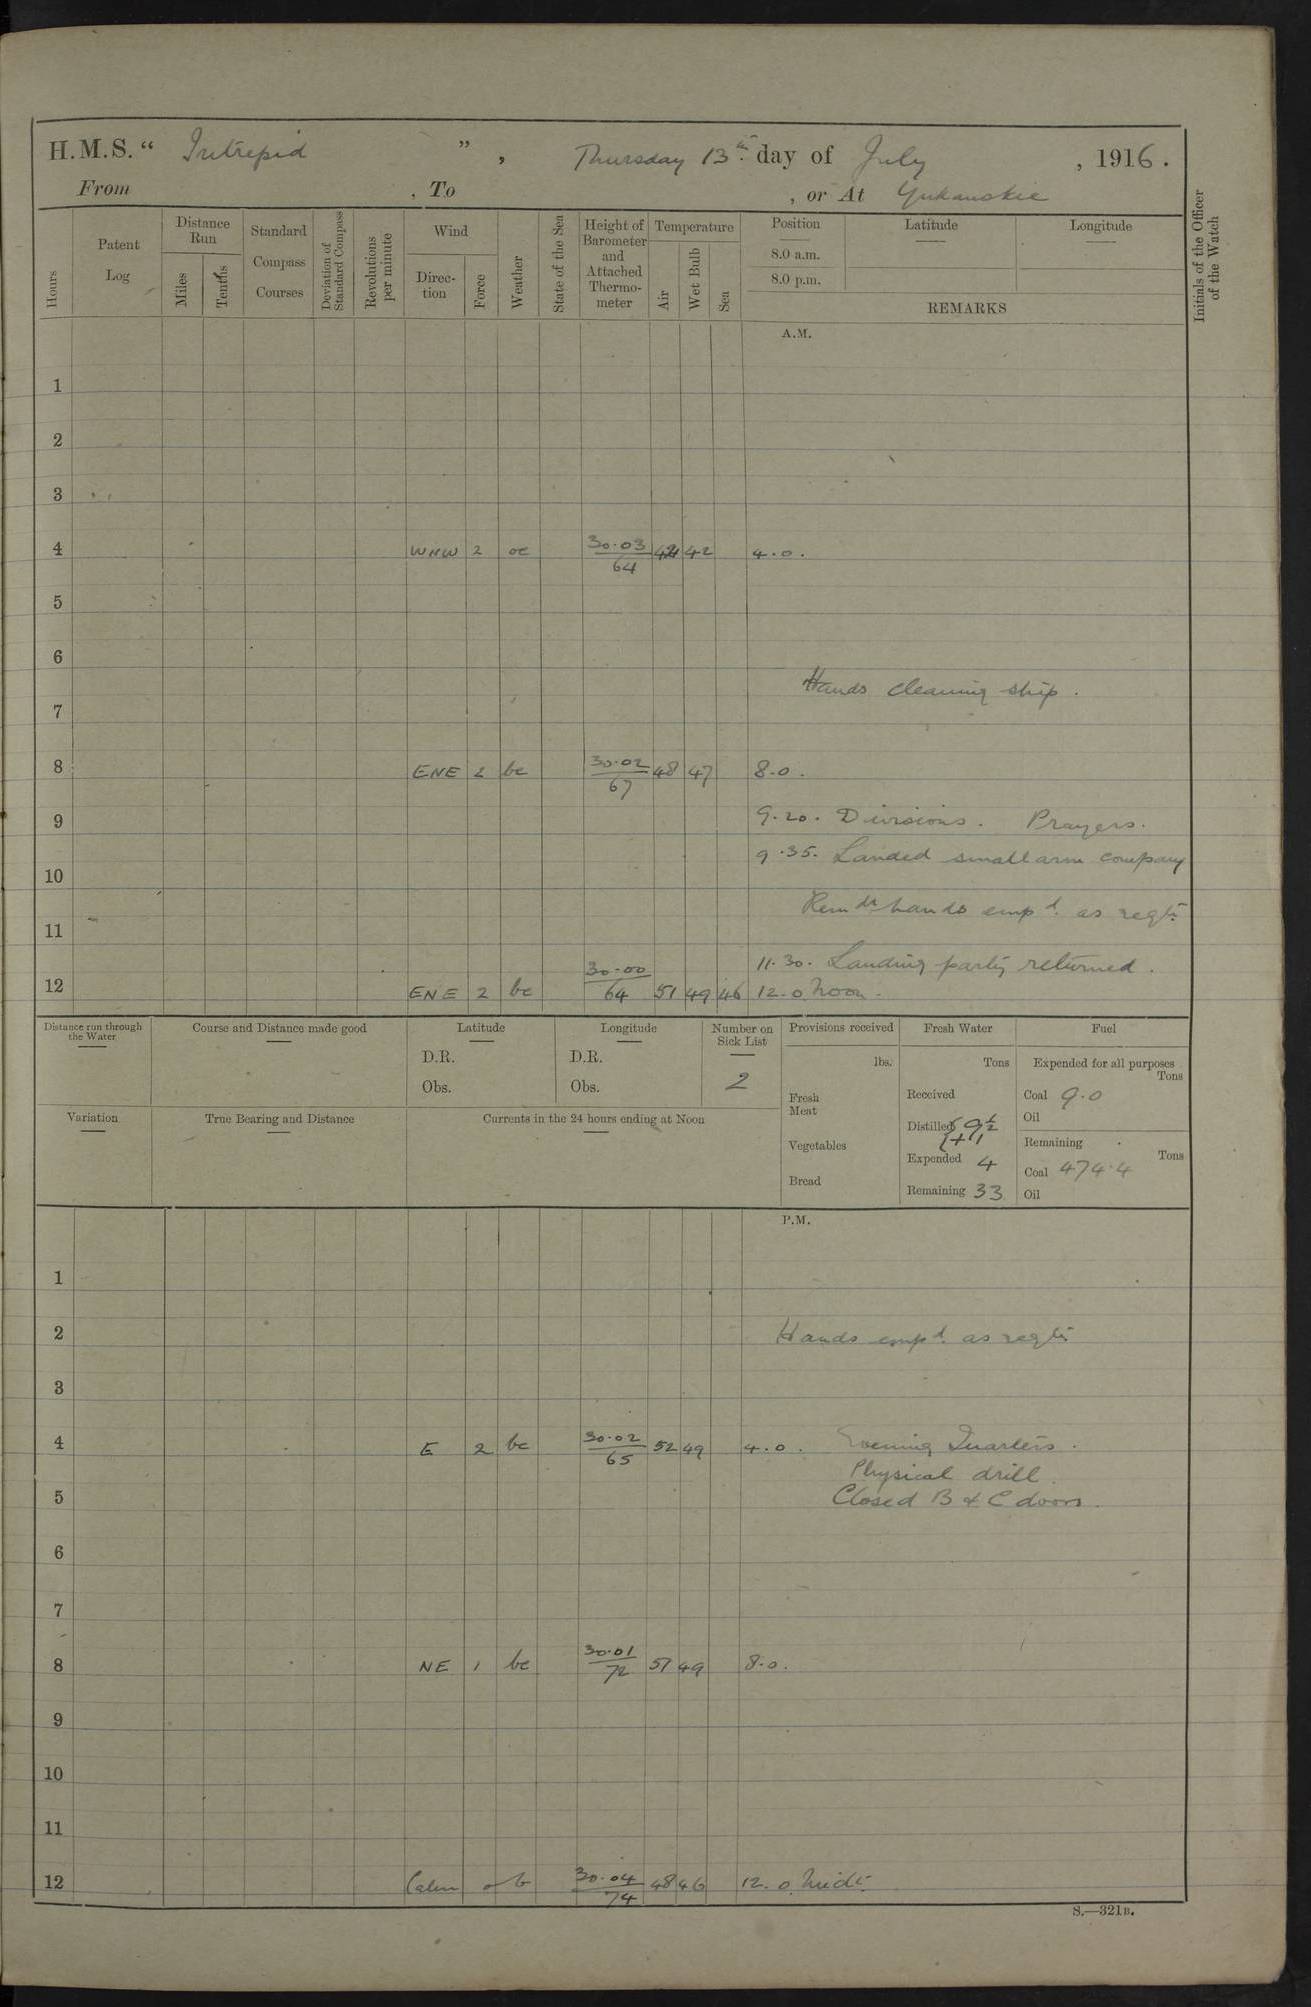 H.M.S. “ Intrepid ” , Thursday 13th day of July , 1916 .
From , To , or At Yukanskie
Hours
Patent Log
Distance Run
Miles
Tenths
Standard Compass Courses
Deviation of Standard Compass
Revolutions per minute
Wind
Direction
Force
Weather
State of the Sea
Height of Barometer and Attached Thermometer
Temperature
Air
Wet Bulb
Sea
Position
8.0 a.m.
8.0 p.m.
Latitude
Longitude
REMARKS
Initials of the Officer of the Watch
A.M.
1
2
3
4 WNW 2 oc 30.03/64 42 4.0.
5
6
Hands cleaning ship.
7
8 ENE 2 bc 30.02/67 48 47 8.0.
9 9.20. Divisions. Prayers.
9.35. Landed small arm company
10
Remdr hands empd. as reqte.
11
11.30. Landing party returned.
12 ENE 2 bc 30.00/64 51 49 46 12.0 Noon.
Distance run through the Water
Course and Distance made good
Latitude
D.R.
Obs.
Longitude
D.R.
Obs.
Number on Sick List
2
Provisions received
lbs.
Fresh Meat
Vegetables
Bread
Fresh Water
Tons
Received
Distilled 9½
+1
Expended 4
Remaining 33
Fuel
Expended for all purposes
Tons
Coal 9.0
Oil
Remaining
Tons
Coal 474.4
Oil
Variation
True Bearing and Distance
Currents in the 24 hours ending at Noon
P.M.
1
2 Hands empd. as reqte
3
4 E 2 bc 30.02/65 52 49 4.0. Evening Quarters.
Physical drill.
5 Closed B & C doors.
6
7
8 NE 1 bc 30.01/72 51 49 8.0.
9
10
11
12 Calm o b 30.04/74 48 46 12.0 Midt.
S.—321B.